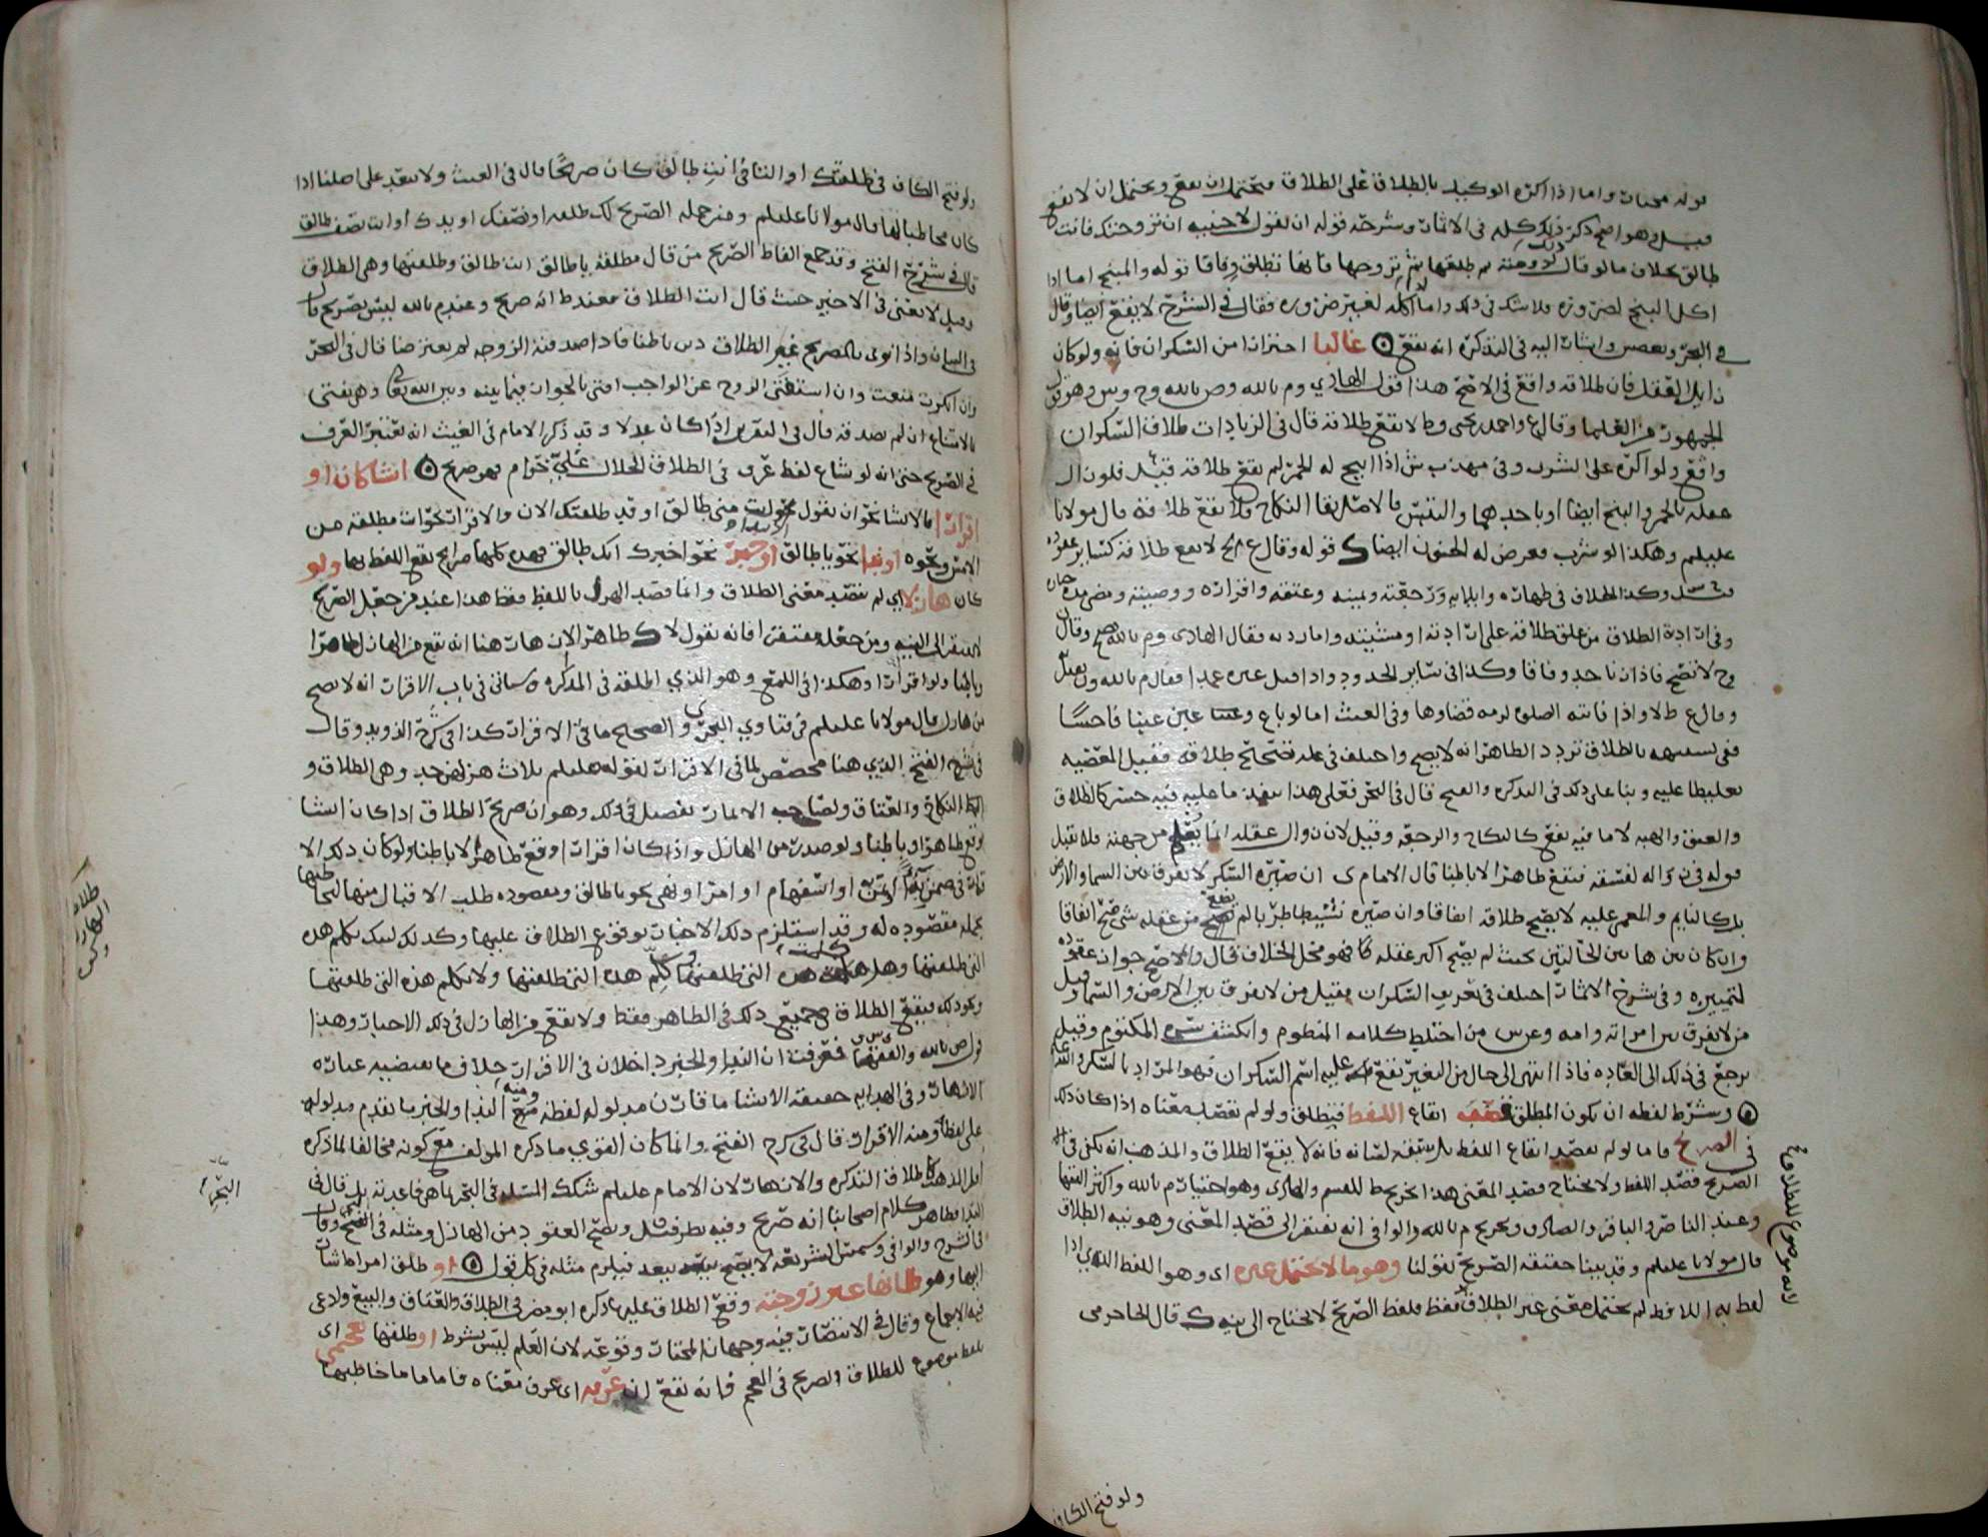 قوله مختار واما اذا اكره الوكيل بالطلاق على الطلاق فيحتمل ان يقع ويحتمل ان لا يقع
قيل وهو اصح ذكر ذلك كله في الاثمار وشرحه قوله ان يقول لاجنبيه ان تزوجتك فانت
طالق بخلاف ما لو قال لزوجته ثم طلقها ثم تزوجها فانها تطلق وفاقا قوله والمبنج اما اذا
اكل البنج لضروره فلا شك في ذلك واما اكله لغير ضروره فقال في الشرح لا يقع ايضا وقال
في البحر واشار اليه في التذكره انه يقع غالبا احترازا من السكران فانه ولو كان
زايل العقل فان طلاقه واقع في الاصح هذا قول الهادي وم بالله وص بالله وح وس وهو قول
الجمهور من العلما وقال ع واحمد بن يحيى وط لا يقع طلاقه قال في الزيادات طلاق السكران
واقع ولو اكره على الشرب وفي مهذب ش اذا ابيح له الخمر لم يقع طلاقه قيل فلو زال
عقله بالخمر والبنج ايضا او باحدهما والتبس فالاصل بقا النكاح فلا يقع طلاقه قال مولانا
عليلم وهكذا لو شرب فعرض له الجنون ايضا قوله وقال ع لا يقع طلاقه كساير عقوده
وكذا الخلاف في ظهاره وايلايه ورجعته ويمينه وعتقه واقراره ووصيته
وفي ارادة الطلاق من علق طلاقه على ارادته او مشيئته واما ردته فقال الهادي وم بالله تصح وقال
وح لا تصح فاذا زنا حد وفاقا وكذا في ساير الحدود واذا قتل غيره عمدا فقال م بالله ون يقتل
وقال ع ط لا واذا فاتته الصلوه لزمه قضاوها وفي الغيث اما لو باع وغبن غبنا فاحشا
ففي تشبيهه بالطلاق تردد الظاهر انه لا يصح واختلف في علة صحة طلاقه فقيل المعصيه
تغليظا عليه وبنا على ذلك في التذكره والفتح قال في البحر فعلى هذا ينفذ ما عليه فيه خسر كالطلاق
والعتق والهبه لا ما فيه نفع كالنكاح والرجعه وقيل لان زوال عقله انما يعلم من جهته فلا تقبل
قوله في زواله لفسقه فيقع ظاهرا لا باطنا قال الامام ى ان صيره السكر لا يفرق بين السما والارض
بل كالنايم والمغمى عليه لا يصح طلاقه اتفاقا وان صيره نشيطا طربا لم يضع من عقله شي صح اتفاقا
وان كان بين هاتين الحالتين بحيث لم يضع اكثر عقله فهو محل الخلاف قال والاصح جواز عقوده
لتمييزه وفي شرح الاثمار اختلف في تعريف السكران فقيل من لا يفرق بين الارض والسما وقيل
من لا يفرق بين امراته وامه وعن س من اختلط كلامه المنظوم وانكشف سره المكتوم وقيل
يرجع في ذلك الى العاده فاذا انتهى الى حال من التغير يقع عليه اسم السكران فهو المراد بالسكر والله اعلم
وشرط لفظه ان يكون المطلق قصد ايقاع اللفظ فيطلق ولو لم يقصد معناه اذا كان ذلك
في الصريح فاما لو لم يقصد ايقاع اللفظ بل سبقه لسانه فانه لا يقع الطلاق والمذهب انه يكفي في
الصريح قصد اللفظ ولا يحتاج قصد المعنى هذا تخريج ط للقسم والهادى وهو اختيار م بالله واكثر الفقها
وعند الناصر والباقر والصادق وتخريج م بالله والوافي انه يفتقر الى قصد المعنى وهو نيه الطلاق
قال مولانا عليلم وقد بينا حقيقه الصريح بقولنا وهو ما لا يحتمل غيره اى وهو اللفظ الذي اذا
لفظ به اللافظ لم يحتمل معنى غير الطلاق فقط فلفظ الصريح لا يحتاج الى نيه قال
لانه موضوع للطلاق
ولو فتح الكاف
ولو فتح الكاف في طلقتك او التا في انت طالق كان صريحا قال في الغيث ولا يبعد على اصلنا اذا
كان مخاطبا لها قال مولانا عليلم ومن جمله الصريح لك طلقه او نصفك او يدك او انت نصف طالق
قال في شرح الفتح وقد جمع الفاظ الصريح من قال مطلقه يا طالق انت طالق وطلقتها وهي الطلاق
وقيل لا يعني في الاخير حيث قال انت الطلاق فعند ط انه صريح وعند م بالله ليس بصريح قال
في البيان واذا نوى بالصريح غير الطلاق دين باطنا فاذا صدقته الزوجه لم يعترضا قال في البحر
وان انكرت منعت وان استفتى الزوج عن الواجب افتي بالجواز فيما بينه وبين الله تعالى وهي تفتي
بالامتناع ان لم تصدقه قال في التقرير اذا كان عدلا وقد ذكر الامام في الغيث انه يعتبر العرف
في الصريح حتى انه لو شاع لفظ عرف في الطلاق الحلال علي حرام فهو صريح انشا كان او
اقرارا فالانشا نحو ان يقول انت مني طالق او قد طلقتك الان والاقرار نحو انت مطلقه من
الامس ونحوه او ندا نحو يا طالق او خبرا نحو اخبرك انك طالق فهذه كلها صرايح يقع اللفظ بها ولو
كان هازلا اي لم يقصد معنى الطلاق وانما قصد الهزل باللفظ فقط هذا عند من جعل الصريح
لا يفتقر الى النيه ومن جعله مفتقرا فانه يقول لا ظاهر الازهار هنا انه يقع من الهازل ظاهرا
وباطنا ولو اقرارا وهكذا في اللمع وهو الذي اطلقه في التذكره وسياتي في باب الاقرار انه لا يصح
من هازل قال مولانا عليلم في فتاوي البحر والصحيح ما في الاقرار كذا في شرح الذويد وقال
في شرح الفتح الذي هنا مخصص لما في الاقرار لقوله عليلم ثلاث هزلهن جد وهي الطلاق و
النكاح والعتاق ولصاحب الاثمار تفصيل في ذلك وهو ان صريح الطلاق اذا كان انشا
وقع ظاهرا وباطنا ولو صدر من الهازل واذا كان اقرارا وقع ظاهرا لا باطنا ولو كان ذلك الا
قرار في ضمن او استفهام او امر او نهي نحو يا طالق ومقصوده طلب الاقبال منها
بجمله مقصوده له وقد استلزم ذلك الاخبار بوقوع الطلاق عليها وكذلك ليتك تكلم هذه
التي طلقتها وهل كلمت هذه التي طلقتها وكلم هذه التي طلقتها ولا تكلم هذه التي طلقتها
ونحو ذلك فيقع الطلاق في جميع ذلك في الظاهر فقط ولا يقع من الهازل في ذلك الاخبار وهذا
قول ص بالله والفقها فعرفت ان الندا والخبر داخلان في الاقرار خلاف ما يقتضيه عباره
الازهار وفي الهدايه حقيقه الانشا ما قارن مدلوله لفظه ومنه الندا والخبر ما تقدم مدلوله
على لفظه ومنه الاقرار قال في شرح الفتح وانما كان القوي ما ذكره المولف مع كونه مخالفا لما ذكره
اهل المذهب كاطلاق التذكره والازهار لان الامام عليلم شكك المسئله في البحر بل قال في
الندا فظاهر كلام اصحابنا انه صريح وفيه نظر ويصح العقود من الهازل ومثله في الفتح وقال
في الشرح والوافي وسمس الشريعه لا يصح بيعه فيلزم مثله في كل قول او طلق امراة اشار
اليها وهو ظانها غير زوجته وقع الطلاق عليه ذكره ابو مضر في الطلاق والعتاق والبيع وادعى
فيه الاجماع وقال في الانتصار فيه وجهان المختار وقوعه لان العلم ليس بشرط او طلقها بعجمي اى
بلفظ موضوع للطلاق الصريح في العجم فانه يقع ان عرفه اى عرف معناه فاما ما خاطبها
طلاق الهازل
البحر